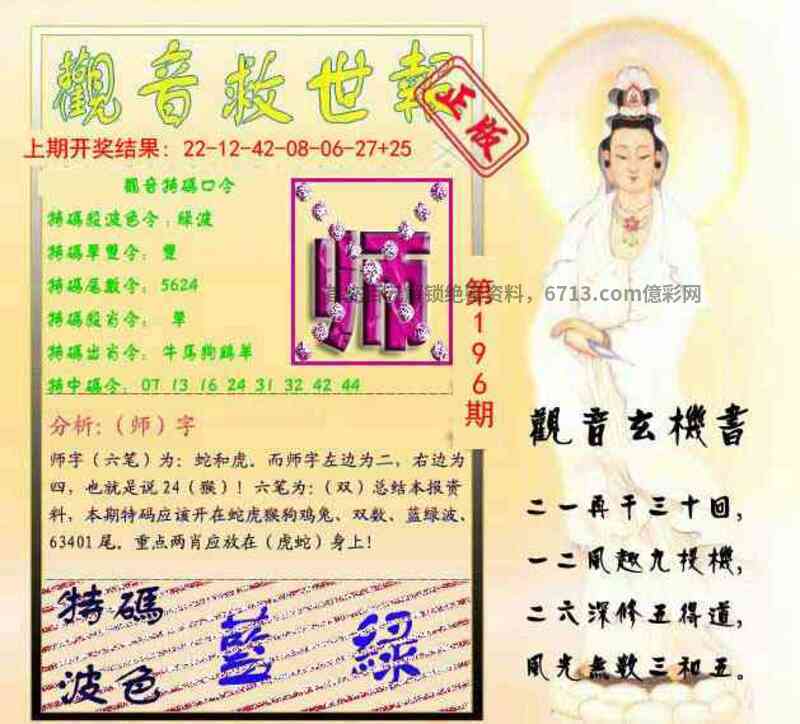 觀音救世報
正版
上期开奖结果：22-12-42-08-06-27+25
觀音特碼口令
特碼殺波色令：綠波
特碼單雙令：雙
特碼尾數令：5624
特碼殺肖令：單
特碼出肖令：牛馬狗鷄羊
特中碼令：07 13 16 24 31 32 42 44
师
锁绝 资料，6713.com億彩网
第196期
分析：（师）字
师字（六笔）为：蛇和虎。而师字左边为二，右边为
四，也就是说24（猴）！六笔为：（双）总结本报资
料，本期特码应该开在蛇虎猴狗鸡兔、双数、蓝绿波、
63401尾。重点两肖应放在（虎蛇）身上！
特碼
波色
藍 綠
觀音玄機書
二一再干三十回，
一二風趣九投機，
二六深修五得道，
風光無數三和五。